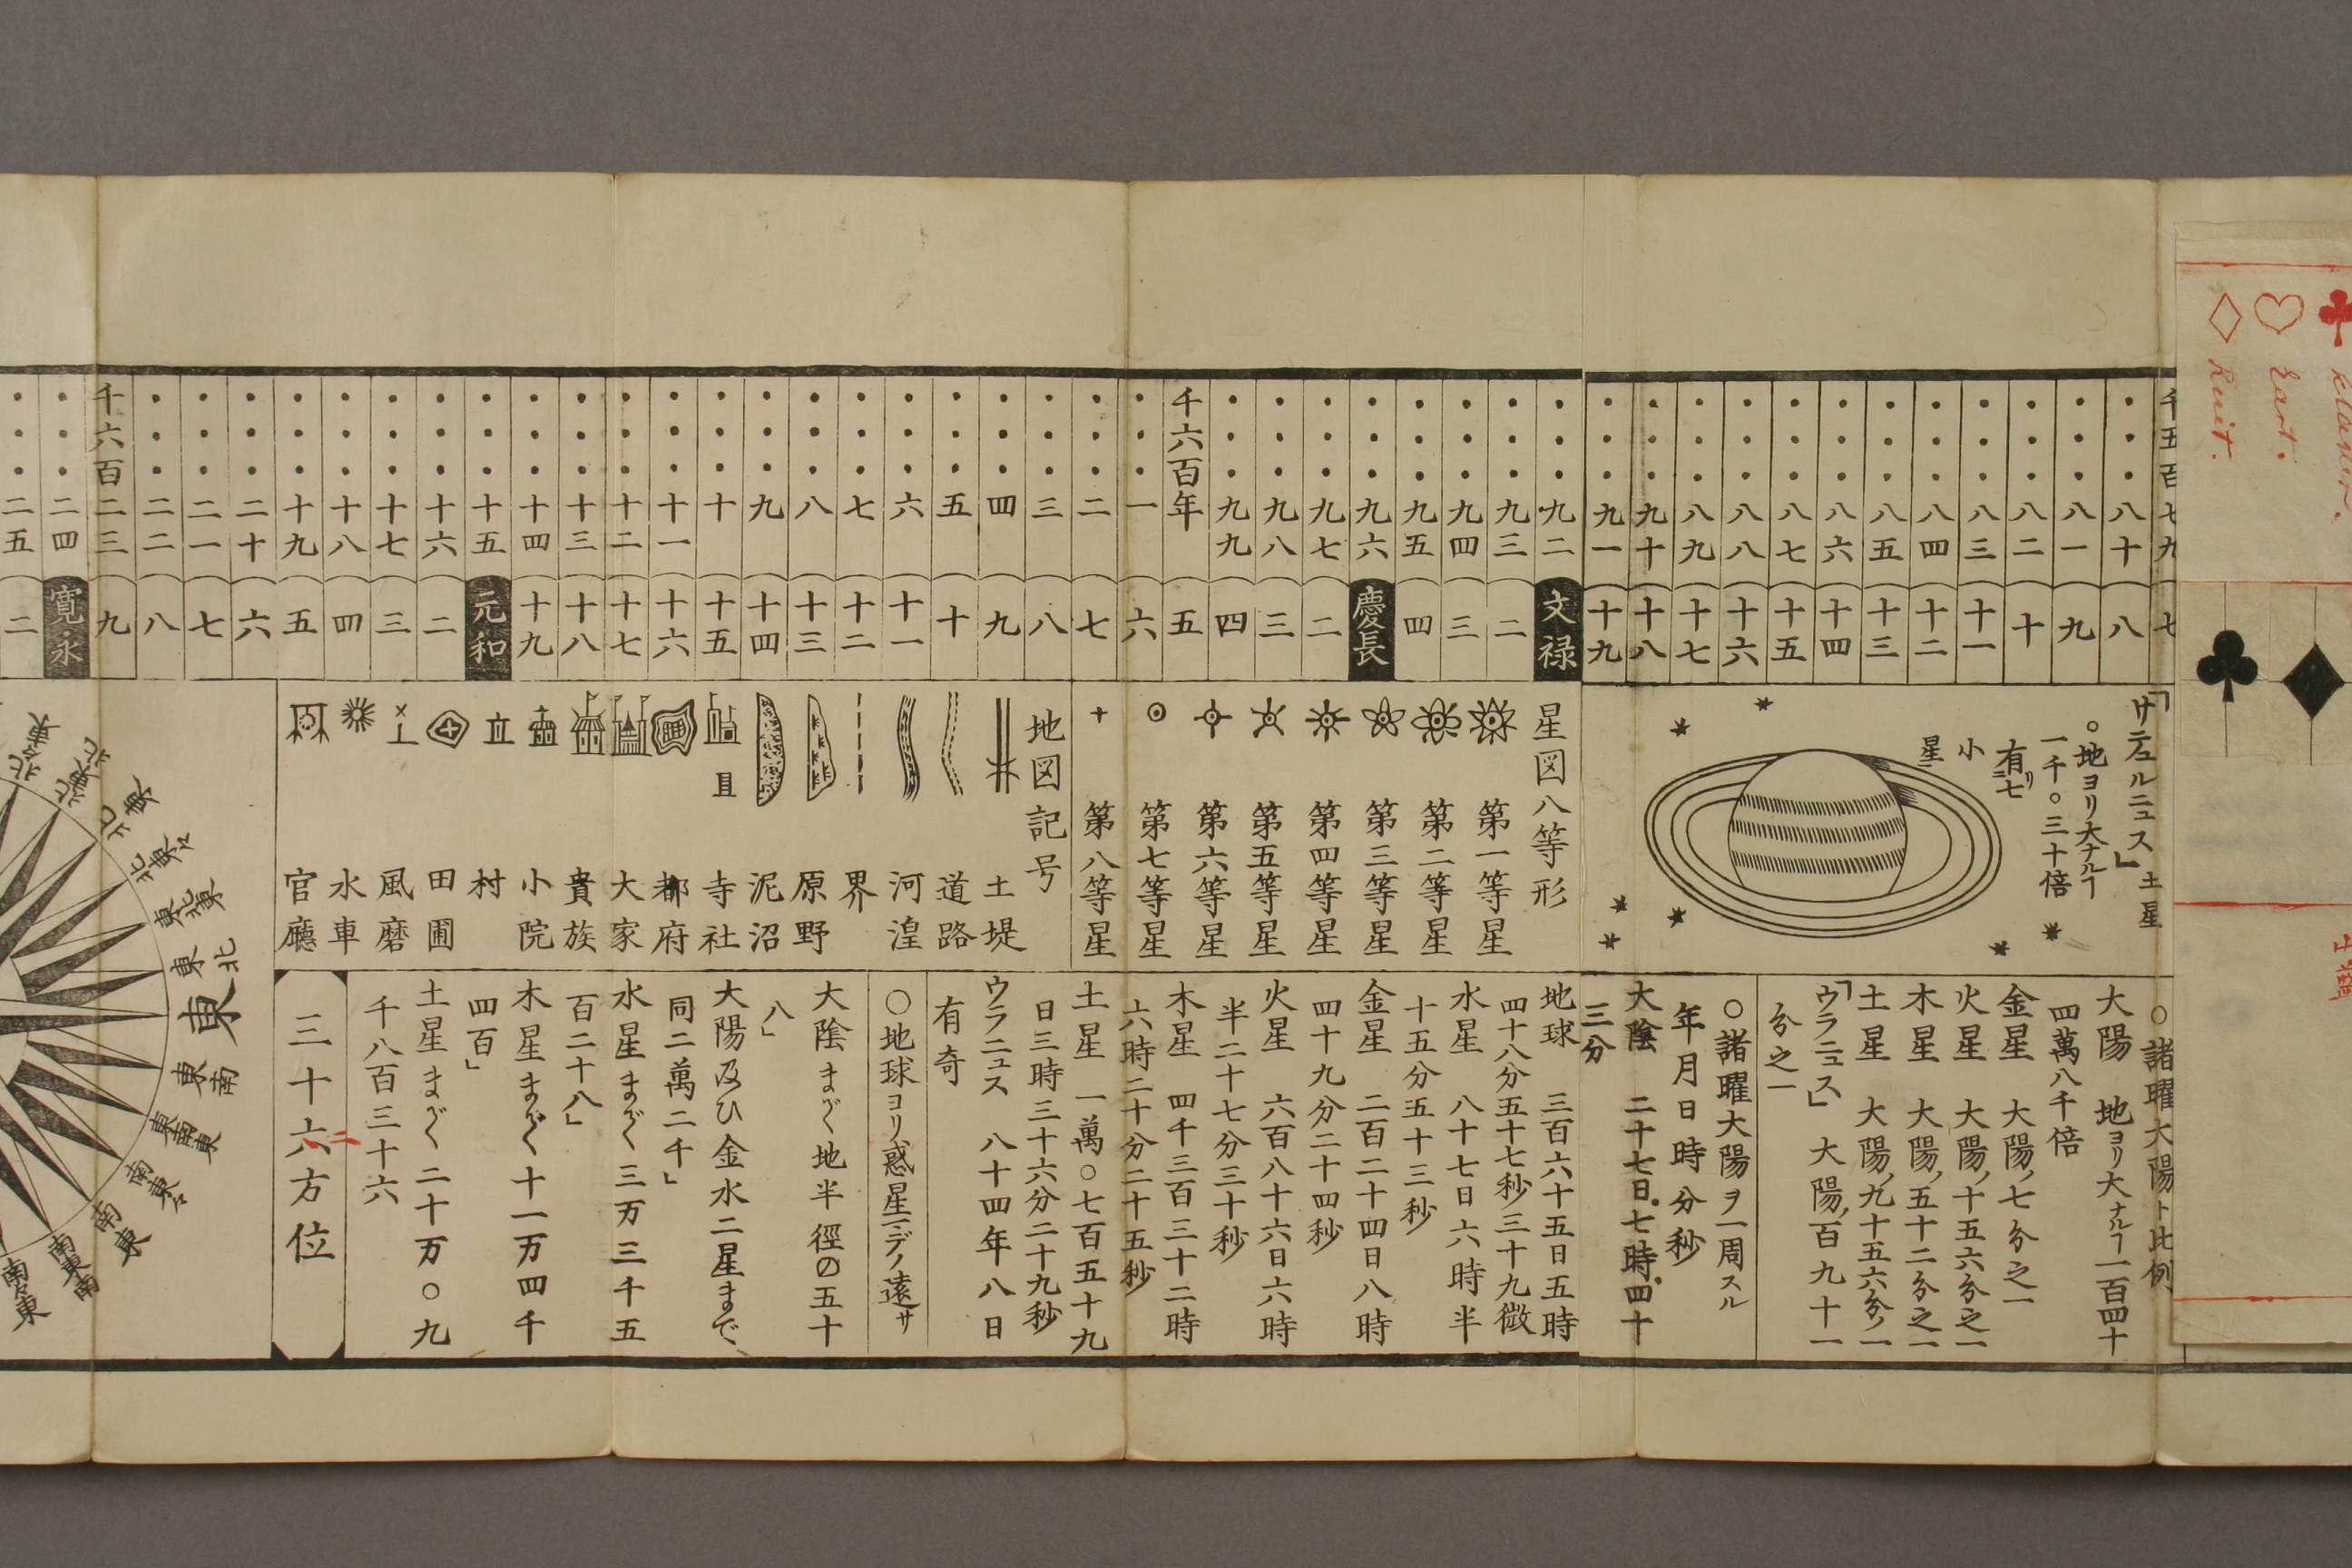 Ruit.
千五百七九 七
・・・八十 八
・・・八一 九
・・・八二 十
・・・八三 十一
・・・八四 十二
・・・八五 十三
・・・八六 十四
・・・八七 十五
・・・八八 十六
・・・八九 十七
・・・九十 十八
・・・九一 十九
・・・九二 文禄
・・・九三 二
・・・九四 三
・・・九五 四
・・・九六 慶長
・・・九七 二
・・・九八 三
・・・九九 四
千六百年 五
・・・一 六
・・・二 七
・・・三 八
・・・四 九
・・・五 十
・・・六 十一
・・・七 十二
・・・八 十三
・・・九 十四
・・・十 十五
・・・十一 十六
・・・十二 十七
・・・十三 十八
・・・十四 十九
・・・十五 元和
・・・十六 二
・・・十七 三
・・・十八 四
・・・十九 五
・・・二十 六
・・・二一 七
・・・二二 八
千六百二三 九
・・・二四 寛永
・・・二五 二
「サテュルニュス」土星
○地ヨリ大ナルヿ
一千○三十倍
有リ七
小
星
星図八等形
第一等星
第二等星
第三等星
第四等星
第五等星
第六等星
第七等星
第八等星
地図記号
土堤
道路
河湟
界
原野
泥沼
寺社
都府
大家
貴族
小院
村
田圃
風磨
水車
官廳
○諸曜大陽ト比例
大陽 地ヨリ大ナルヿ一百四十
四萬八千倍
金星 大陽ノ七分之一
火星 大陽ノ十五六分之一
木星 大陽ノ五十二分之一
土星 大陽ノ九十五六分ノ一
「ウラニュス」 大陽ノ百九十一
分之一
○諸曜大陽ヲ一周スル
年月日時分秒
大陰 二十七日.七時.四十
三分
地球 三百六十五日五時
四十八分五十七秒三十九微
水星 八十七日六時半
十五分五十三秒
金星 二百二十四日八時
四十九分二十四秒
火星 六百八十六日六時
半二十七分三十秒
木星 四千三百三十二時
六時二十分二十五秒
土星 一萬○七百五十九
日三時三十六分二十九秒
ウラニュス 八十四年八日
有奇
○地球ヨリ惑星マデノ遠サ
大陰まで地半徑の五十
八」
大陽及ひ金水二星まで
同二萬二千」
水星まで三万三千五
百二十八」
木星まで十一万四千
四百」
土星まで二十万○九
千八百三十六
三十六方位
二
東北
東
東南
南東